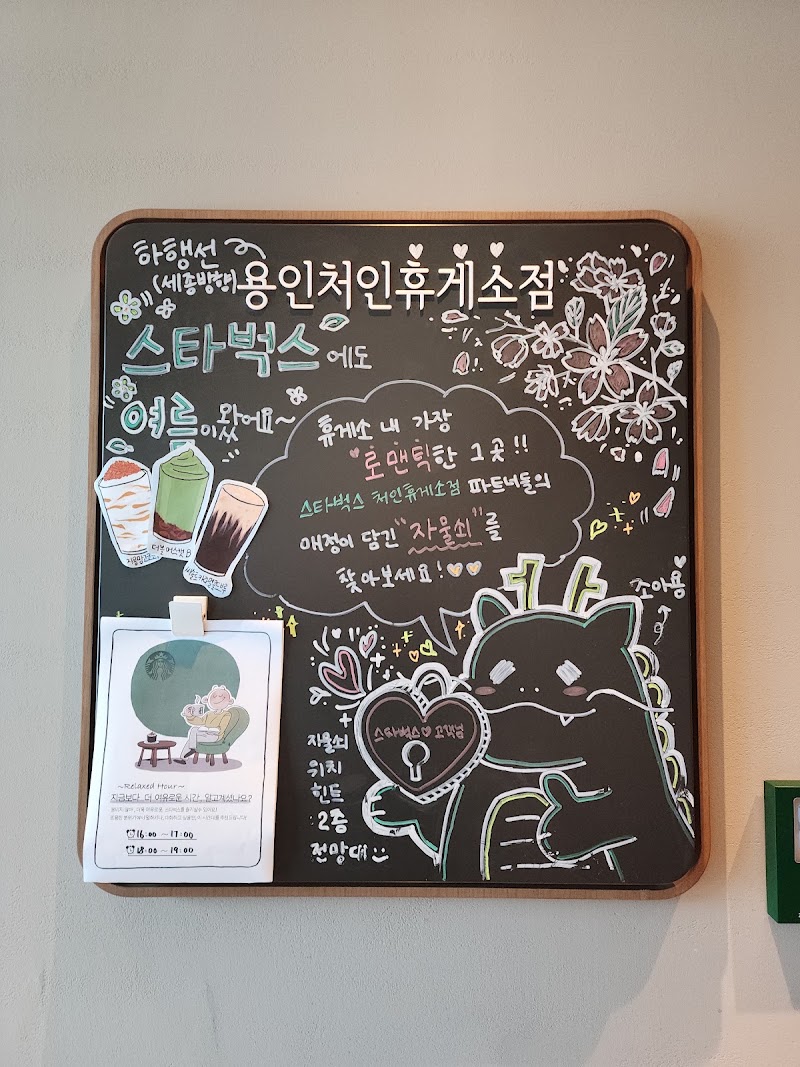 하행선
(세종방향)
용인처인휴게소점
스타벅스에도
여름이 왔어요~
휴게소 내 가장
"로맨틱한 그곳!!
스타벅스 처인휴게소점 파트너들의
애정이 담긴 "자물쇠"를
찾아보세요!
조아용
스타벅스♡고객님
+
자물쇠
위치
힌트
2층
전망대
~Relaxed Hour~
지금보다, 더 여유로운 시간, 알고계셨나요?
16:00 ~ 17:00
18:00 ~ 19:00